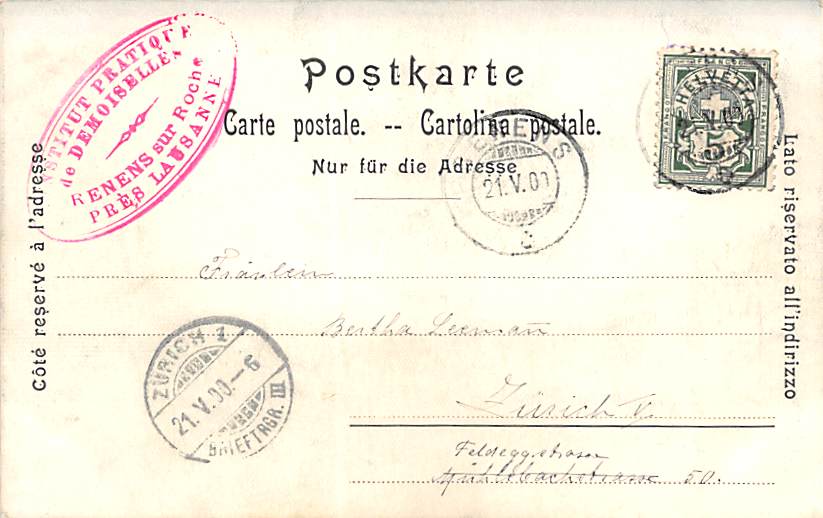 INSTITUT PRATIQUE
de DEMOISELLES
RENENS sur Roche
PRÈS LAUSANNE
Postkarte
Carte postale. -- Cartolina postale.
Nur für die Adresse
Côté reservé à l'adresse
Lato riservato all'indirizzo
HELVETIA
FRANCO
RENENS
21.V.00
Fräulein
Bertha Leemann
Zürich V.
Feldeggstrasse
Mühlebachstrasse 50.
ZÜRICH 1
21.V.00-6
BRIEFTRGR. III